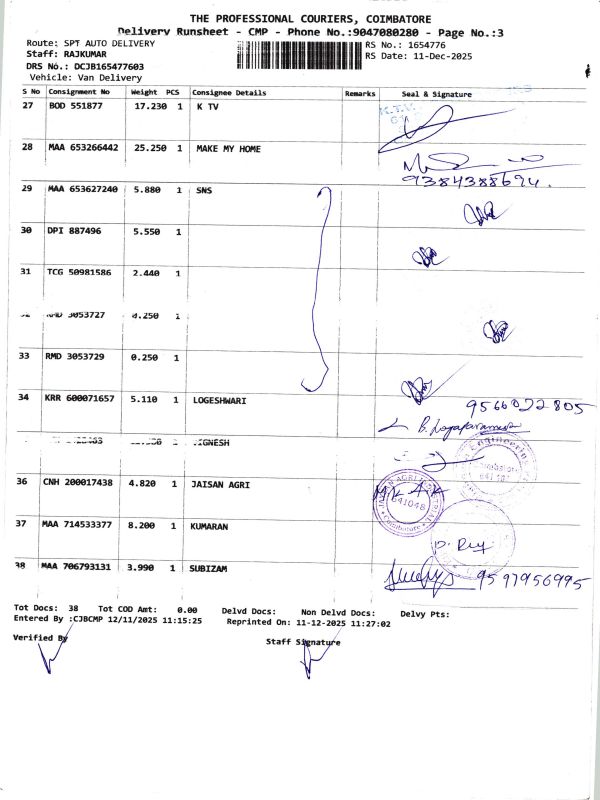 THE PROFESSIONAL COURIERS, COIMBATORE
Delivery Runsheet - CMP - Phone No.:9047080280 - Page No.:3
Route: SPT AUTO DELIVERY RS No.: 1654776
Staff: RAJKUMAR RS Date: 11-Dec-2025
DRS No.: DCJB165477603
Vehicle: Van Delivery
S No Consignment No Weight PCS Consignee Details Remarks Seal & Signature
27 BOD 551877 17.230 1 K TV
28 MAA 653266442 25.250 1 MAKE MY HOME
9384388694.
29 MAA 653627240 5.880 1 SNS
30 DPI 887496 5.550 1
31 TCG 50981586 2.440 1
3053727 0.250 1
33 RMD 3053729 0.250 1
34 KRR 600071657 5.110 1 LOGESHWARI 9566022805
36 CNH 200017438 4.820 1 JAISAN AGRI M.K.A.K
641048
Coimbatore
37 MAA 714533377 8.200 1 KUMARAN
38 MAA 706793131 3.990 1 SUBIZAM 9597956995
Tot Docs: 38 Tot COD Amt: 0.00 Delvd Docs: Non Delvd Docs: Delvy Pts:
Entered By :CJBCMP 12/11/2025 11:15:25 Reprinted On: 11-12-2025 11:27:02
Verified By Staff Signature